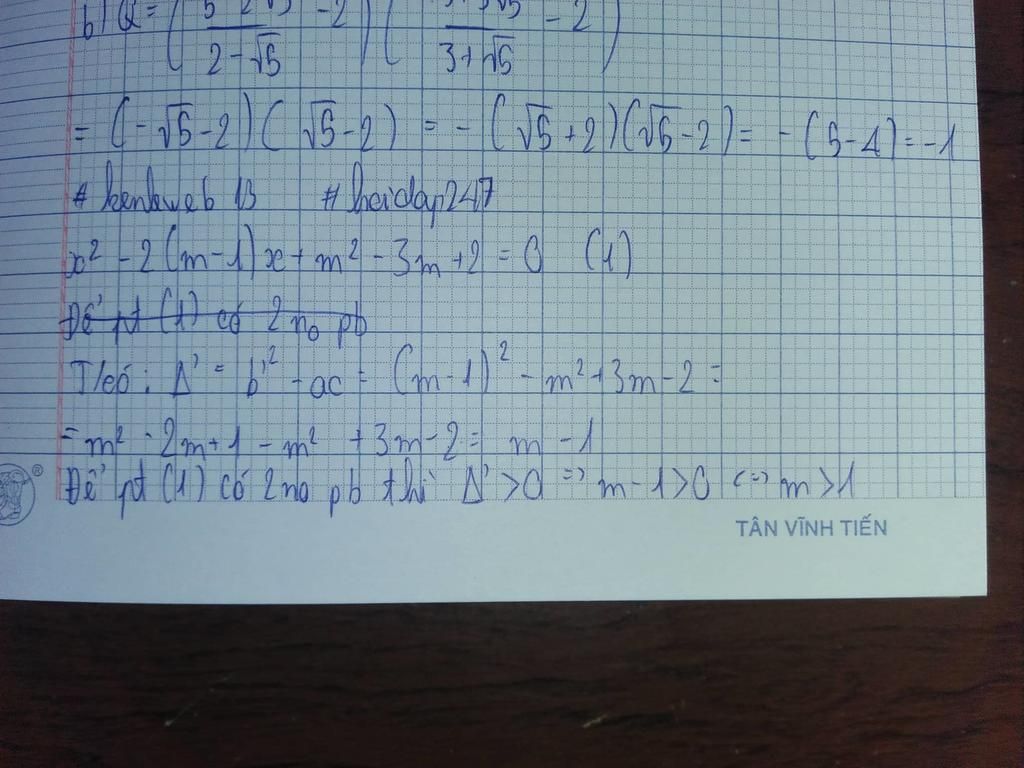 b) Q = ( (5-2√5)/(2-√5) - 2 ) ( /(3+√5) - 2 )
= (-√5-2)(√5-2) = -(√5+2)(√5-2) = -(5-4) = -1
# kenhweb 13 # hoidap247
x² - 2(m-1)x + m² - 3m + 2 = 0 (1)
Để pt (1) có 2 no pb
T/có: Δ' = b'² - ac = (m-1)² - m² + 3m - 2 =
= m² - 2m + 1 - m² + 3m - 2 = m - 1
Để pt (1) có 2 no pb thì Δ' > 0 => m - 1 > 0 <=> m > 1
®
TÂN VĨNH TIẾN